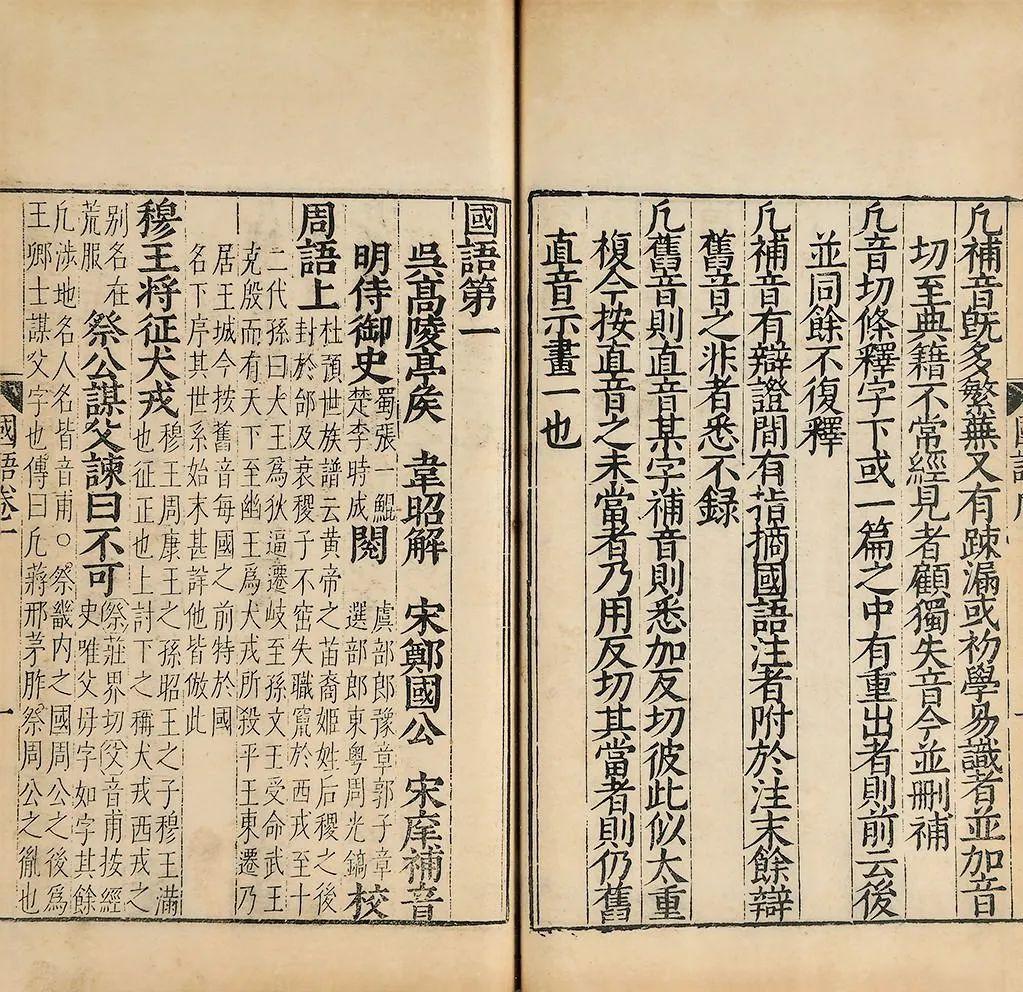 凢補音旣多繁蕪又有踈漏或初學易識者並加音
切至典籍不常經見者顧獨失音今並刪補
凢音切條釋字下或一篇之中有重出者則前云後
並同餘不復釋
凢補音有辯證間有指摘國語注者附於注末餘辯
舊音之非者悉不録
凢舊音則直音某字補音則悉加反切彼此似太重
複今按直音之未當者乃用反切其當者則仍舊
直音示畫一也
國語第一
吳高陵亭矦 韋昭解 宋鄭國公 宋庠補音
明侍御史 蜀張一鯤 楚李時成 閱 虞部郎豫章郭子章 選部郎東粵周光鎬 校
周語上 杜預世族譜云黄帝之苗裔姬姓后稷之後
封於邰及衰稷子不窋失職竄於西戎至十
二代孫曰大王爲狄逼遷岐至孫文王受命武王
克殷而有天下至幽王爲犬戎所殺平王東遷乃
居王城今按舊音每國之前特於國
名下序其世系始末甚詳他皆倣此
穆王将征犬戎 穆王周康王之孫昭王之子穆王滿
也征正也上討下之稱犬戎西戎之
别名在
荒服
祭公謀父諫曰不可 祭莊界切父音甫按經
史唯父母字如字其餘
凢涉地名人名皆音甫○祭畿内之國周公之後爲
王卿士謀父字也傳曰凢蔣邢茅胙祭周公之胤也
國語卷一
一